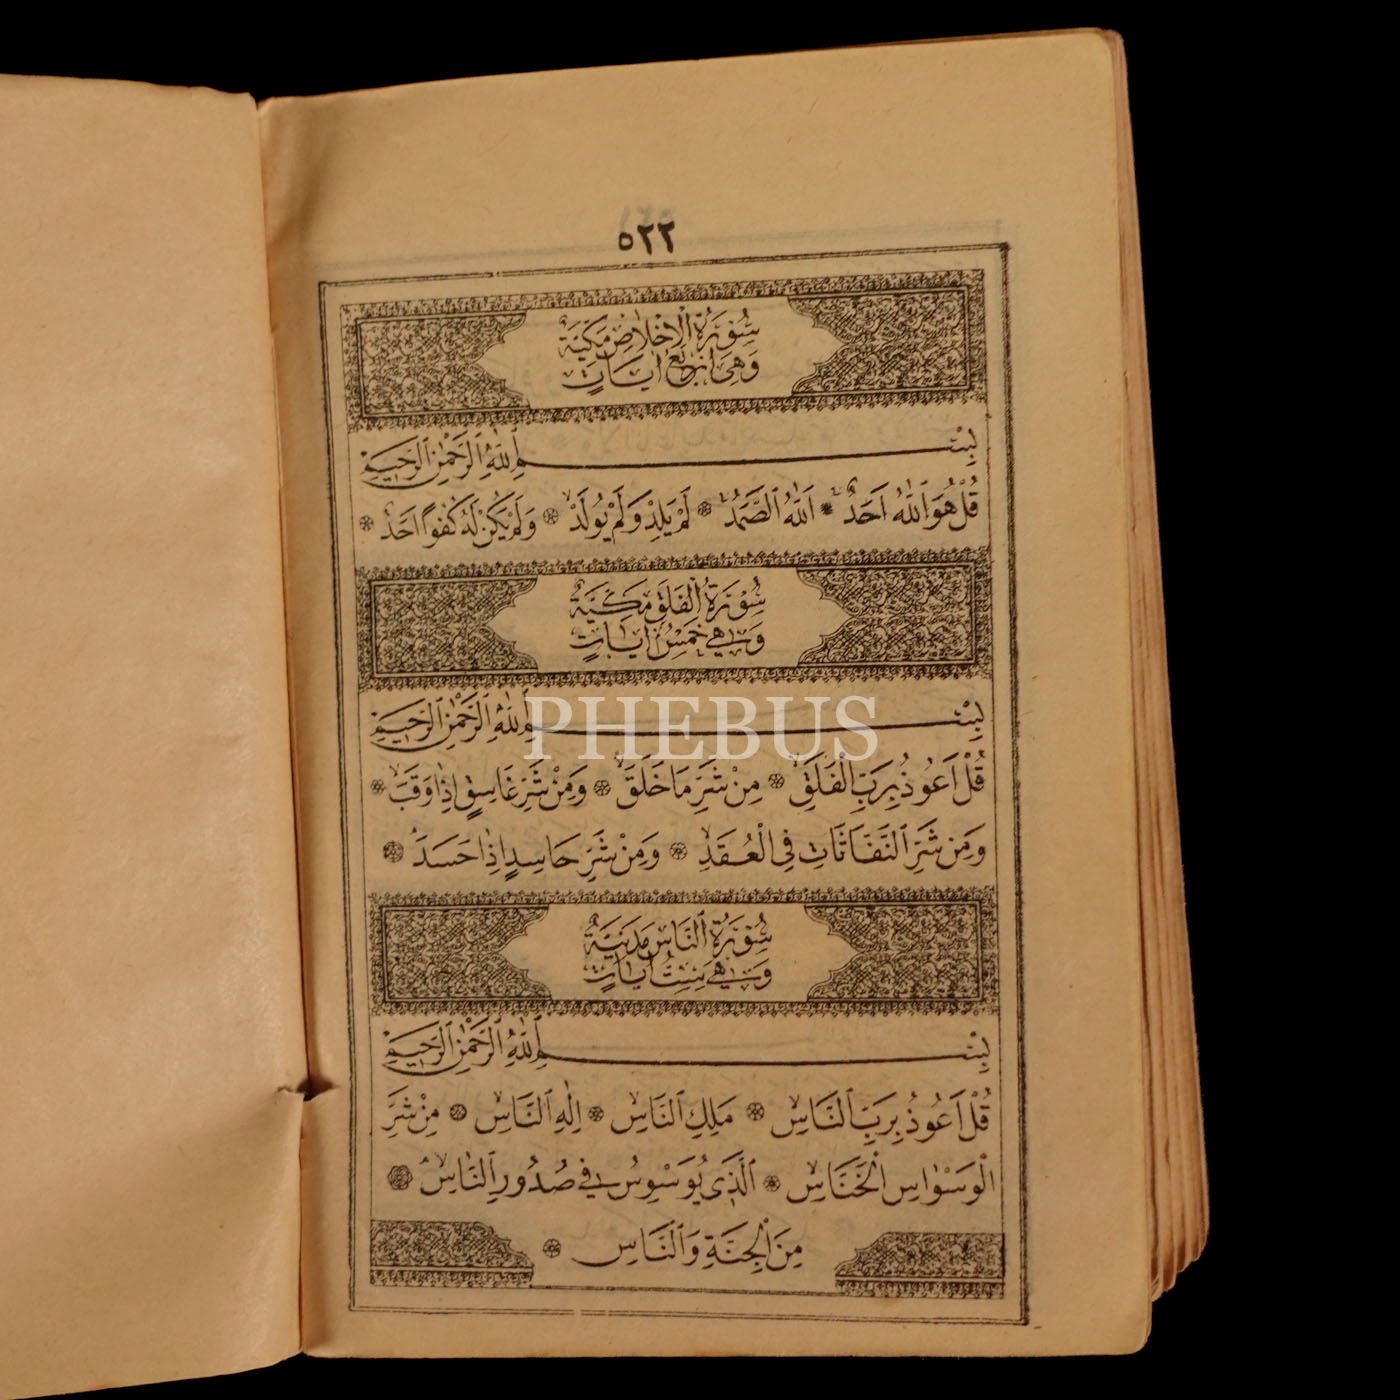 ٥٢٢
سُورَةُ الْاِخْلَاصِ مَكِّيَّةٌ
وَهِيَ اَرْبَعُ اٰيَاتٍ
بِسْمِ اللّٰهِ الرَّحْمٰنِ الرَّحِيمِ
قُلْ هُوَ اللّٰهُ اَحَدٌ ۞ اَللّٰهُ الصَّمَدُ ۞ لَمْ يَلِدْ وَلَمْ يُولَدْ ۞ وَلَمْ يَكُنْ لَهُ كُفُوًا اَحَدٌ ۞
سُورَةُ الْفَلَقِ مَكِّيَّةٌ
وَهِيَ خَمْسُ اٰيَاتٍ
بِسْمِ اللّٰهِ الرَّحْمٰنِ الرَّحِيمِ
PHEBUS
قُلْ اَعُوذُ بِرَبِّ الْفَلَقِ ۞ مِنْ شَرِّ مَا خَلَقَ ۞ وَمِنْ شَرِّ غَاسِقٍ اِذَا وَقَبَ ۞
وَمِنْ شَرِّ النَّفَّاثَاتِ فِي الْعُقَدِ ۞ وَمِنْ شَرِّ حَاسِدٍ اِذَا حَسَدَ ۞
سُورَةُ النَّاسِ مَدَنِيَّةٌ
وَهِيَ سِتُّ اٰيَاتٍ
بِسْمِ اللّٰهِ الرَّحْمٰنِ الرَّحِيمِ
قُلْ اَعُوذُ بِرَبِّ النَّاسِ ۞ مَلِكِ النَّاسِ ۞ اِلٰهِ النَّاسِ ۞ مِنْ شَرِّ
الْوَسْوَاسِ الْخَنَّاسِ ۞ اَلَّذِي يُوَسْوِسُ فِي صُدُورِ النَّاسِ ۞
مِنَ الْجِنَّةِ وَالنَّاسِ ۞